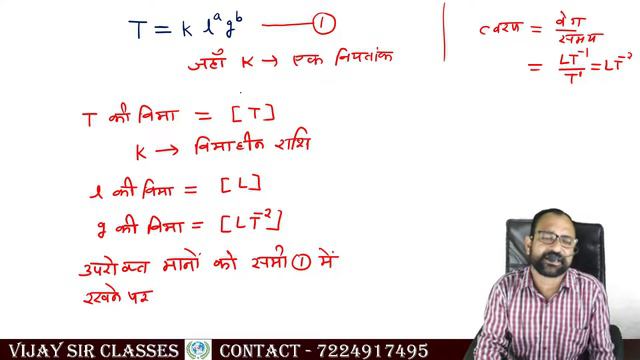 T = K l^a g^b ——— ①
जहाँ K → एक नियतांक
T की विमा = [T]
K → विमाहीन राशि
l की विमा = [L]
g की विमा = [LT⁻²]
उपरोक्त मानों को समी ① में
रखने पर
त्वरण = वेग / समय
= LT⁻¹ / T¹ = LT⁻²
VIJAY SIR CLASSES CONTACT - 7224917495